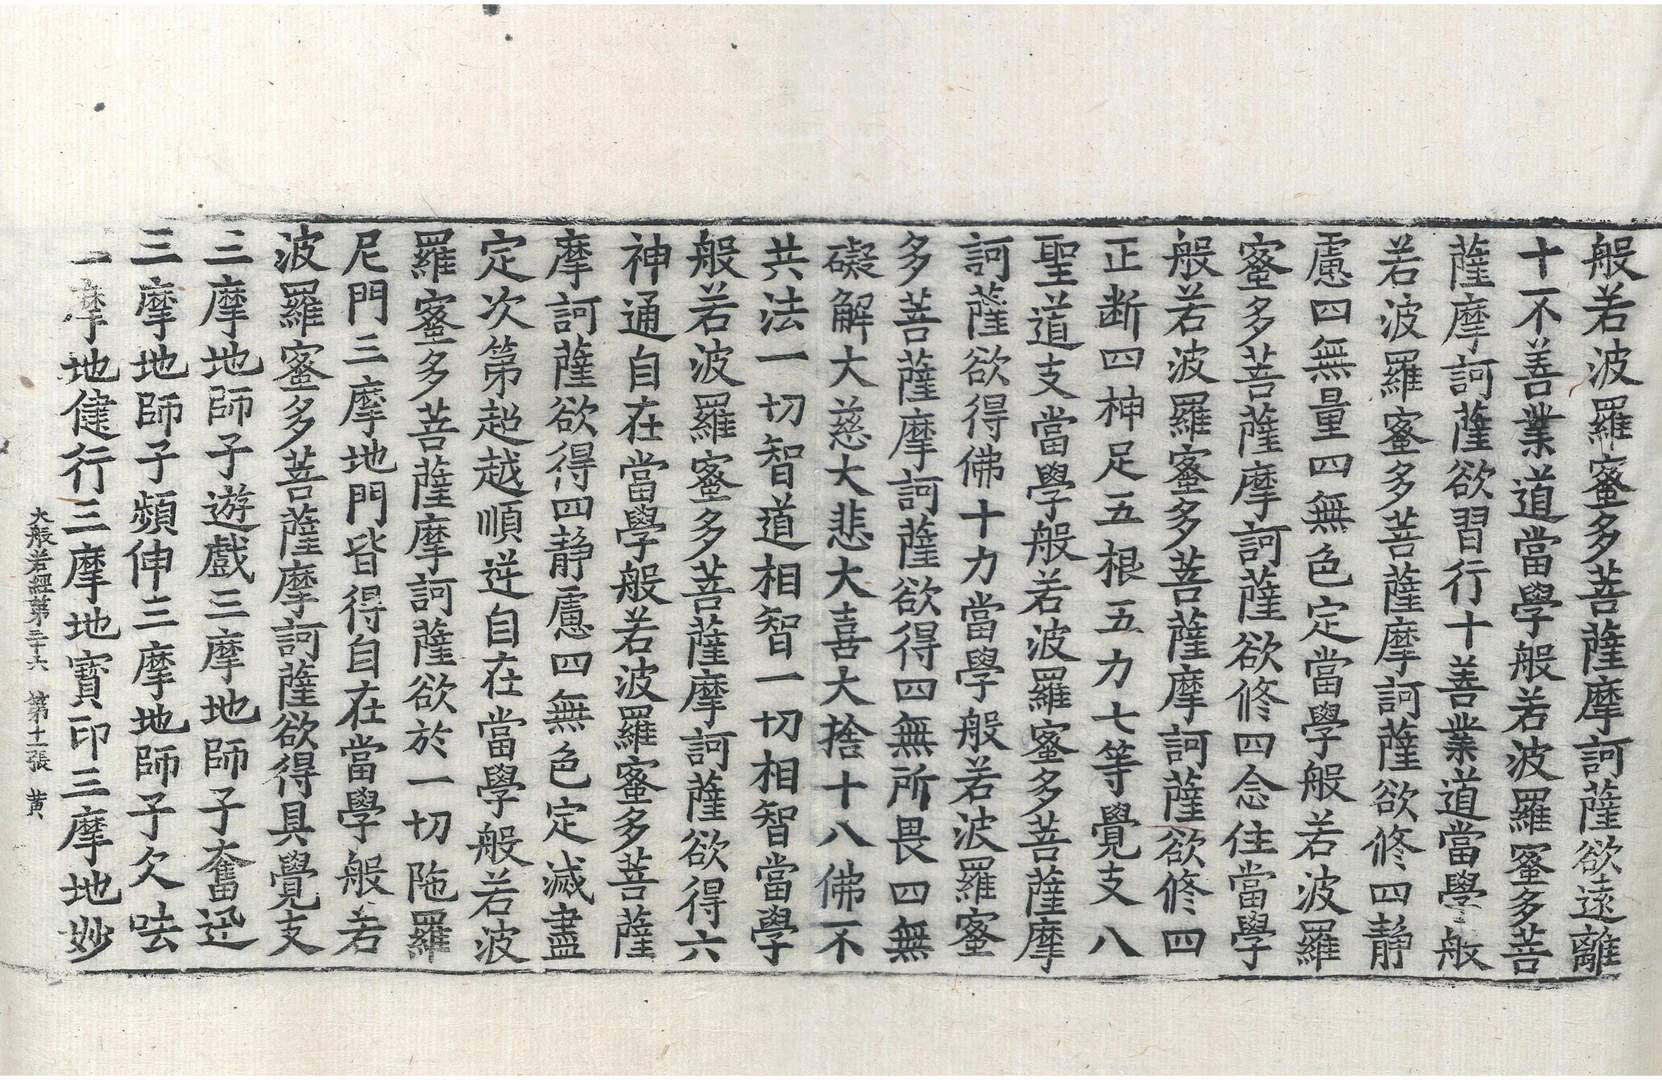 般若波羅蜜多菩薩摩訶薩欲遠離
十不善業道當學般若波羅蜜多菩
薩摩訶薩欲習行十善業道當學般
若波羅蜜多菩薩摩訶薩欲修四靜
慮四無量四無色定當學般若波羅
蜜多菩薩摩訶薩欲修四念住當學
般若波羅蜜多菩薩摩訶薩欲修四
正断四神足五根五力七等覺支八
聖道支當學般若波羅蜜多菩薩摩
訶薩欲得佛十力當學般若波羅蜜
多菩薩摩訶薩欲得四無所畏四無
礙解大慈大悲大喜大捨十八佛不
共法一切智道相智一切相智當學
般若波羅蜜多菩薩摩訶薩欲得六
神通自在當學般若波羅蜜多菩薩
摩訶薩欲得四靜慮四無色定滅盡
定次第超越順逆自在當學般若波
羅蜜多菩薩摩訶薩欲於一切陁羅
尼門三摩地門皆得自在當學般若
波羅蜜多菩薩摩訶薩欲得具覺支
三摩地師子遊戲三摩地師子奮迅
三摩地師子頻伸三摩地師子欠呿
三摩地健行三摩地寶印三摩地妙
大般若經第三十六 第十一張 黃